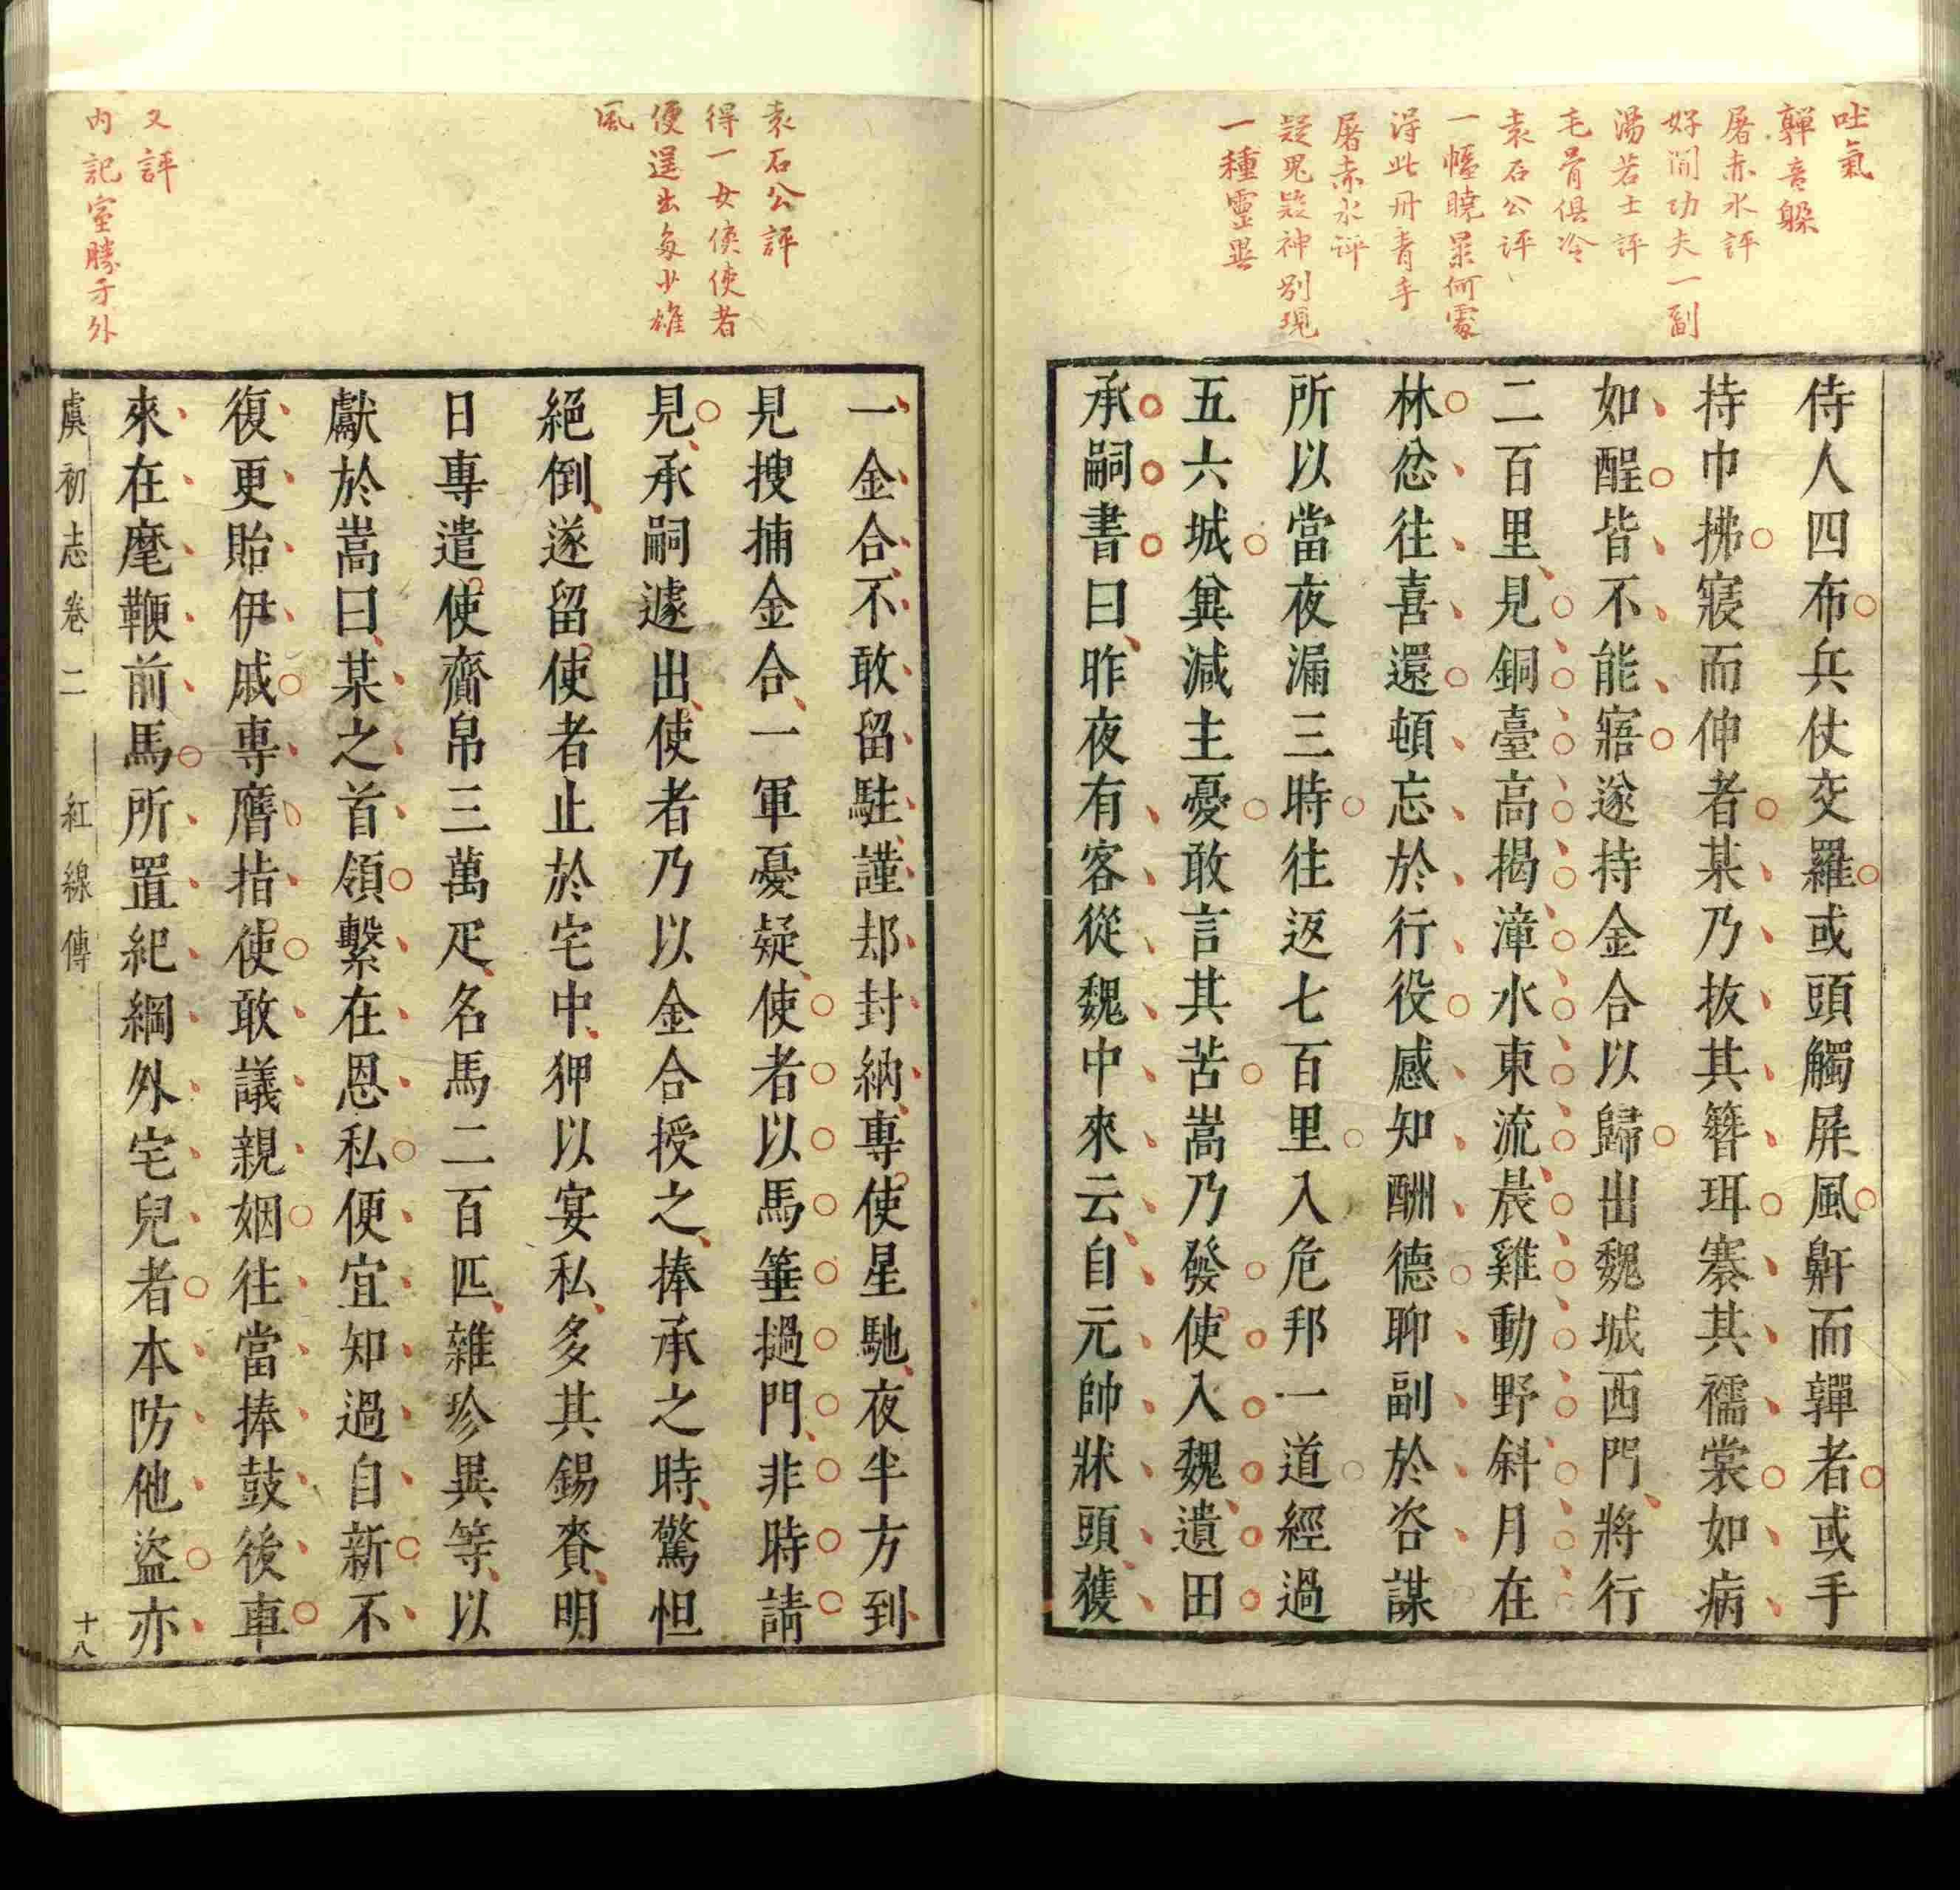 吐氣
鼾音躲
屠赤水評
好閒功夫一副
湯若士評
毛骨俱冷
袁石公評
一幅曉景何處
得此丹青手
屠赤水評
疑鬼疑神別現
一種靈異
侍人四布兵仗交羅或頭觸屏風鼾而鼾者或手
持巾拂寢而伸者某乃拔其簪珥褰其襦裳如病
如酲皆不能寤遂持金合以歸出魏城西門將行
二百里見銅臺高揭漳水東流晨雞動野斜月在
林忿往喜還頓忘於行役感知酬德聊副於咨謀
所以當夜漏三時往返七百里入危邦一道經過
五六城兾減主憂敢言其苦嵩乃發使入魏遺田
承嗣書曰昨夜有客從魏中來云自元帥牀頭獲
袁石公評
得一女俠使者
便逞出多少雄
風
又評
內記室勝于外
一金合不敢留駐謹却封納專使星馳夜半方到
見搜捕金合一軍憂疑使者以馬箠撾門非時請
見承嗣遽出使者乃以金合授之捧承之時驚怛
絕倒遂留使者止於宅中狎以宴私多其錫賚明
日專遣使齎帛三萬疋名馬二百匹雜珍異等以
獻於嵩曰某之首領繫在恩私便宜知過自新不
復更貽伊戚專膺指使敢議親姻往當捧鼓後車
來在麾鞭前馬所置紀綱外宅兒者本防他盜亦
虞初志卷二 紅線傳 十八